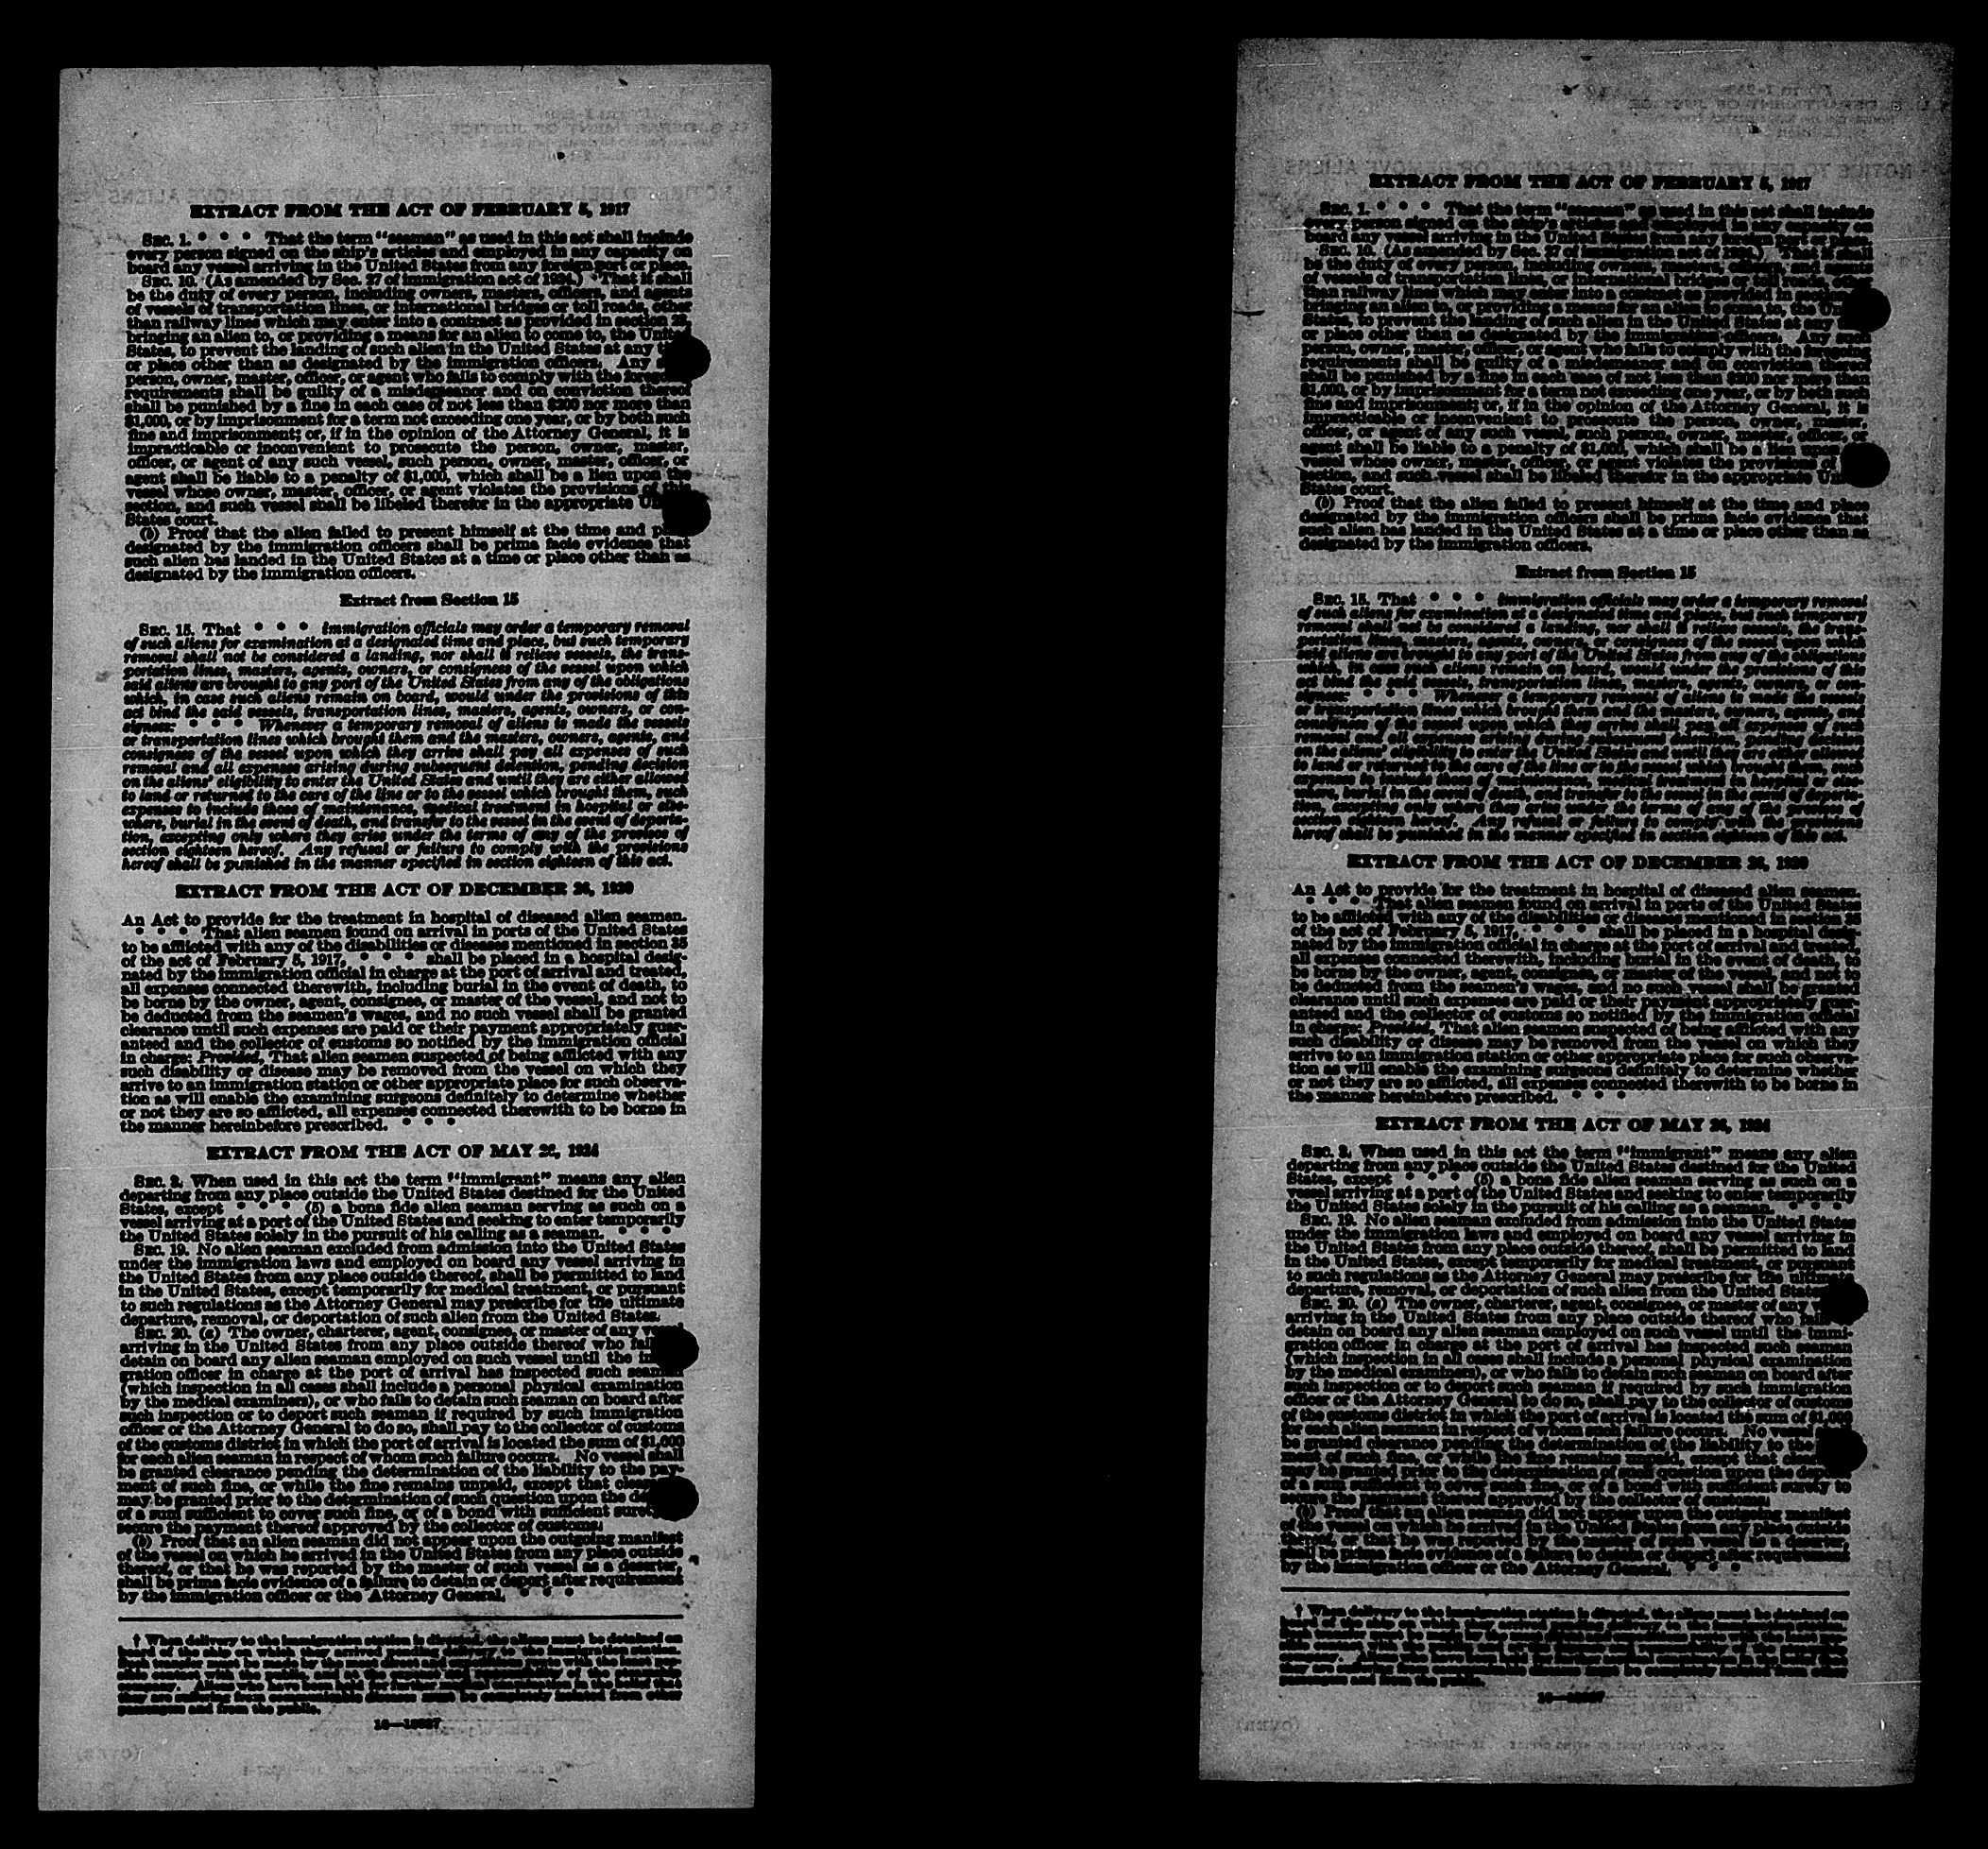 EXTRACT FROM THE ACT OF FEBRUARY 5, 1917
SEC. 1. * * * That the term "seaman" as used in this act shall include
every person signed on the ship's articles and employed in any capacity on
board any vessel arriving in the United States from any foreign port or place.
SEC. 10. (As amended by Sec. 27 of immigration act of 1924.) That it shall
be the duty of every person, including owners, masters, officers, and agents
of vessels of transportation lines, or international bridges or toll roads, other
than railway lines which may enter into a contract as provided in section 23,
bringing an alien to, or providing a means for an alien to come to, the United
States, to prevent the landing of such alien in the United States at any
or place other than as designated by the immigration officers. Any
person, owner, master, officer, or agent who fails to comply with the foregoing
requirements shall be guilty of a misdemeanor and on conviction thereof
shall be punished by a fine in each case of not less than $200 nor more than
$1,000, or by imprisonment for a term not exceeding one year, or by both such
fine and imprisonment; or, if in the opinion of the Attorney General, it is
impracticable or inconvenient to prosecute the person, owner, master,
officer, or agent of any such vessel, such person, owner, master, officer, or
agent shall be liable to a penalty of $1,000, which shall be a lien upon the
vessel whose owner, master, officer, or agent violates the provisions of this
section, and such vessel shall be libeled therefor in the appropriate
States court.
(b) Proof that the alien failed to present himself at the time and
designated by the immigration officers shall be prima facie evidence that
such alien has landed in the United States at a time or place other than as
designated by the immigration officers.
Extract from Section 15
SEC. 15. That * * * immigration officials may order a temporary removal
of such aliens for examination at a designated time and place, but such temporary
removal shall not be considered a landing, nor shall it relieve vessels, the trans-
portation lines, masters, agents, owners, or consignees of the vessel upon which
said aliens are brought to any port of the United States from any of the obligations
which, in case such aliens remain on board, would under the provisions of this
act bind the said vessels, transportation lines, masters, agents, owners, or con-
signees: * * * Whenever a temporary removal of aliens is made the vessels
or transportation lines which brought them and the masters, owners, agents, and
consignees of the vessel upon which they arrive shall pay all expenses of such
removal and all expenses arising during subsequent detention, pending decision
on the aliens' eligibility to enter the United States and until they are either allowed
to land or returned to the care of the line or to the vessel which brought them, such
expenses to include those of maintenance, medical treatment in hospital or else-
where, burial in the event of death, and transfer to the vessel in the event of deporta-
tion, excepting only where they arise under the terms of any of the provisos of
section eighteen hereof. Any refusal or failure to comply with the provisions
hereof shall be punished in the manner specified in section eighteen of this act.
EXTRACT FROM THE ACT OF DECEMBER 26, 1920
An Act to provide for the treatment in hospital of diseased alien seamen.
* * * That alien seamen found on arrival in ports of the United States
to be afflicted with any of the disabilities or diseases mentioned in section 35
of the act of February 5, 1917, * * * shall be placed in a hospital desig-
nated by the immigration official in charge at the port of arrival and treated,
all expenses connected therewith, including burial in the event of death, to
be borne by the owner, agent, consignee, or master of the vessel, and not to
be deducted from the seamen's wages, and no such vessel shall be granted
clearance until such expenses are paid or their payment appropriately guar-
anteed and the collector of customs so notified by the immigration official
in charge: Provided, That alien seamen suspected of being afflicted with any
such disability or disease may be removed from the vessel on which they
arrive to an immigration station or other appropriate place for such observa-
tion as will enable the examining surgeons definitely to determine whether
or not they are so afflicted, all expenses connected therewith to be borne in
the manner hereinbefore prescribed. * * *
EXTRACT FROM THE ACT OF MAY 26, 1924
SEC. 3. When used in this act the term "immigrant" means any alien
departing from any place outside the United States destined for the United
States, except * * * (5) a bona fide alien seaman serving as such on a
vessel arriving at a port of the United States and seeking to enter temporarily
the United States solely in the pursuit of his calling as a seaman. * * *
SEC. 19. No alien seaman excluded from admission into the United States
under the immigration laws and employed on board any vessel arriving in
the United States from any place outside thereof, shall be permitted to land
in the United States, except temporarily for medical treatment, or pursuant
to such regulations as the Attorney General may prescribe for the ultimate
departure, removal, or deportation of such alien from the United States.
SEC. 20. (a) The owner, charterer, agent, consignee, or master of any vessel
arriving in the United States from any place outside thereof who
detain on board any alien seaman employed on such vessel until the
gration officer in charge at the port of arrival has inspected such seaman
(which inspection in all cases shall include a personal physical examination
by the medical examiners), or who fails to detain such seaman on board after
such inspection or to deport such seaman if required by such immigration
officer or the Attorney General to do so, shall pay to the collector of customs
of the customs district in which the port of arrival is located the sum of $1,000
for each alien seaman in respect of whom such failure occurs. No vessel shall
be granted clearance pending the determination of the liability to the pay-
ment of such fine, or while the fine remains unpaid, except that
may be granted prior to the determination of such question upon the
of a sum sufficient to cover such fine, or of a bond with sufficient
secure the payment thereof approved by the collector of customs.
(b) Proof that an alien seaman did not appear upon the outgoing manifest
of the vessel on which he arrived in the United States from any place outside
thereof, or that he was reported by the master of such vessel as a deserter,
shall be prima facie evidence of a failure to detain or deport after requirement
by the immigration officer or the Attorney General. * * *
† When delivery to the immigration station is directed, the aliens must be detained on
passengers and from the public.
EXTRACT FROM THE ACT OF FEBRUARY 5, 1917
SEC. 1. * * * That the term "seaman" as used in this act shall include
every person signed on the ship's articles and employed in any capacity on
board any vessel arriving in the United States from any foreign port or place.
SEC. 10. (As amended by Sec. 27 of immigration act of 1924.) That it shall
be the duty of every person, including owners, masters, officers, and agents
of vessels of transportation lines, or international bridges or toll roads, other
than railway lines which may enter into a contract as provided in section
bringing an alien to, or providing a means for an alien to come to, the
States, to prevent the landing of such alien in the United States at any
or place other than as designated by the immigration officers. Any such
person, owner, master, officer, or agent who fails to comply with the foregoing
requirements shall be guilty of a misdemeanor and on conviction thereof
shall be punished by a fine in each case of not less than $200 nor more than
$1,000, or by imprisonment for a term not exceeding one year, or by both such
fine and imprisonment; or, if in the opinion of the Attorney General, it is
impracticable or inconvenient to prosecute the person, owner, master,
officer, or agent of any such vessel, such person, owner, master, officer, or
agent shall be liable to a penalty of $1,000, which shall be a lien upon
vessel whose owner, master, officer, or agent violates the provisions of
section, and such vessel shall be libeled therefor in the appropriate
States court.
(b) Proof that the alien failed to present himself at the time and place
designated by the immigration officers shall be prima facie evidence that
such alien has landed in the United States at a time or place other than as
designated by the immigration officers.
Extract from Section 15
SEC. 15. That * * * immigration officials may order a temporary removal
of such aliens for examination at a designated time and place, but such temporary
removal shall not be considered a landing, nor shall it relieve vessels, the trans-
portation lines, masters, agents, owners, or consignees of the vessel upon which
said aliens are brought to any port of the United States from any of the obligations
which, in case such aliens remain on board, would under the provisions of this
act bind the said vessels, transportation lines, masters, agents, owners, or con-
signees: * * * Whenever a temporary removal of aliens is made the vessels
or transportation lines which brought them and the masters, owners, agents, and
consignees of the vessel upon which they arrive shall pay all expenses of such
removal and all expenses arising during subsequent detention, pending decision
on the aliens' eligibility to enter the United States and until they are either allowed
to land or returned to the care of the line or to the vessel which brought them, such
expenses to include those of maintenance, medical treatment in hospital or else-
where, burial in the event of death, and transfer to the vessel in the event of deporta-
tion, excepting only where they arise under the terms of any of the provisos of
section eighteen hereof. Any refusal or failure to comply with the provisions
hereof shall be punished in the manner specified in section eighteen of this act.
EXTRACT FROM THE ACT OF DECEMBER 26, 1920
An Act to provide for the treatment in hospital of diseased alien seamen.
* * * That alien seamen found on arrival in ports of the United States
to be afflicted with any of the disabilities or diseases mentioned in section 35
of the act of February 5, 1917, * * * shall be placed in a hospital desig-
nated by the immigration official in charge at the port of arrival and treated,
all expenses connected therewith, including burial in the event of death, to
be borne by the owner, agent, consignee, or master of the vessel, and not to
be deducted from the seamen's wages, and no such vessel shall be granted
clearance until such expenses are paid or their payment appropriately guar-
anteed and the collector of customs so notified by the immigration official
in charge: Provided, That alien seamen suspected of being afflicted with any
such disability or disease may be removed from the vessel on which they
arrive to an immigration station or other appropriate place for such observa-
tion as will enable the examining surgeons definitely to determine whether
or not they are so afflicted, all expenses connected therewith to be borne in
the manner hereinbefore prescribed. * * *
EXTRACT FROM THE ACT OF MAY 26, 1924
SEC. 3. When used in this act the term "immigrant" means any alien
departing from any place outside the United States destined for the United
States, except * * * (5) a bona fide alien seaman serving as such on a
vessel arriving at a port of the United States and seeking to enter temporarily
the United States solely in the pursuit of his calling as a seaman. * * *
SEC. 19. No alien seaman excluded from admission into the United States
under the immigration laws and employed on board any vessel arriving in
the United States from any place outside thereof, shall be permitted to land
in the United States, except temporarily for medical treatment, or pursuant
to such regulations as the Attorney General may prescribe for the ultimate
departure, removal, or deportation of such alien from the United States
SEC. 20. (a) The owner, charterer, agent, consignee, or master of any
arriving in the United States from any place outside thereof who
detain on board any alien seaman employed on such vessel until the immi-
gration officer in charge at the port of arrival has inspected such seaman
(which inspection in all cases shall include a personal physical examination
by the medical examiners), or who fails to detain such seaman on board after
such inspection or to deport such seaman if required by such immigration
officer or the Attorney General to do so, shall pay to the collector of customs
of the customs district in which the port of arrival is located the sum of $1,000
for each alien seaman in respect of whom such failure occurs. No vessel
be granted clearance pending the determination of the liability to the
ment of such fine, or while the fine remains unpaid, except that
may be granted prior to the determination of such question upon the
of a sum sufficient to cover such fine, or of a bond with sufficient surety to
secure the payment thereof approved by the collector of customs.
(b) Proof that an alien seaman did not appear upon the outgoing manifest
of the vessel on which he arrived in the United States from any place outside
thereof, or that he was reported by the master of such vessel as a deserter,
shall be prima facie evidence of a failure to detain or deport after requirement
by the immigration officer or the Attorney General. * * *
† When delivery to the immigration station is directed, the aliens must be detained on
passengers and from the public.